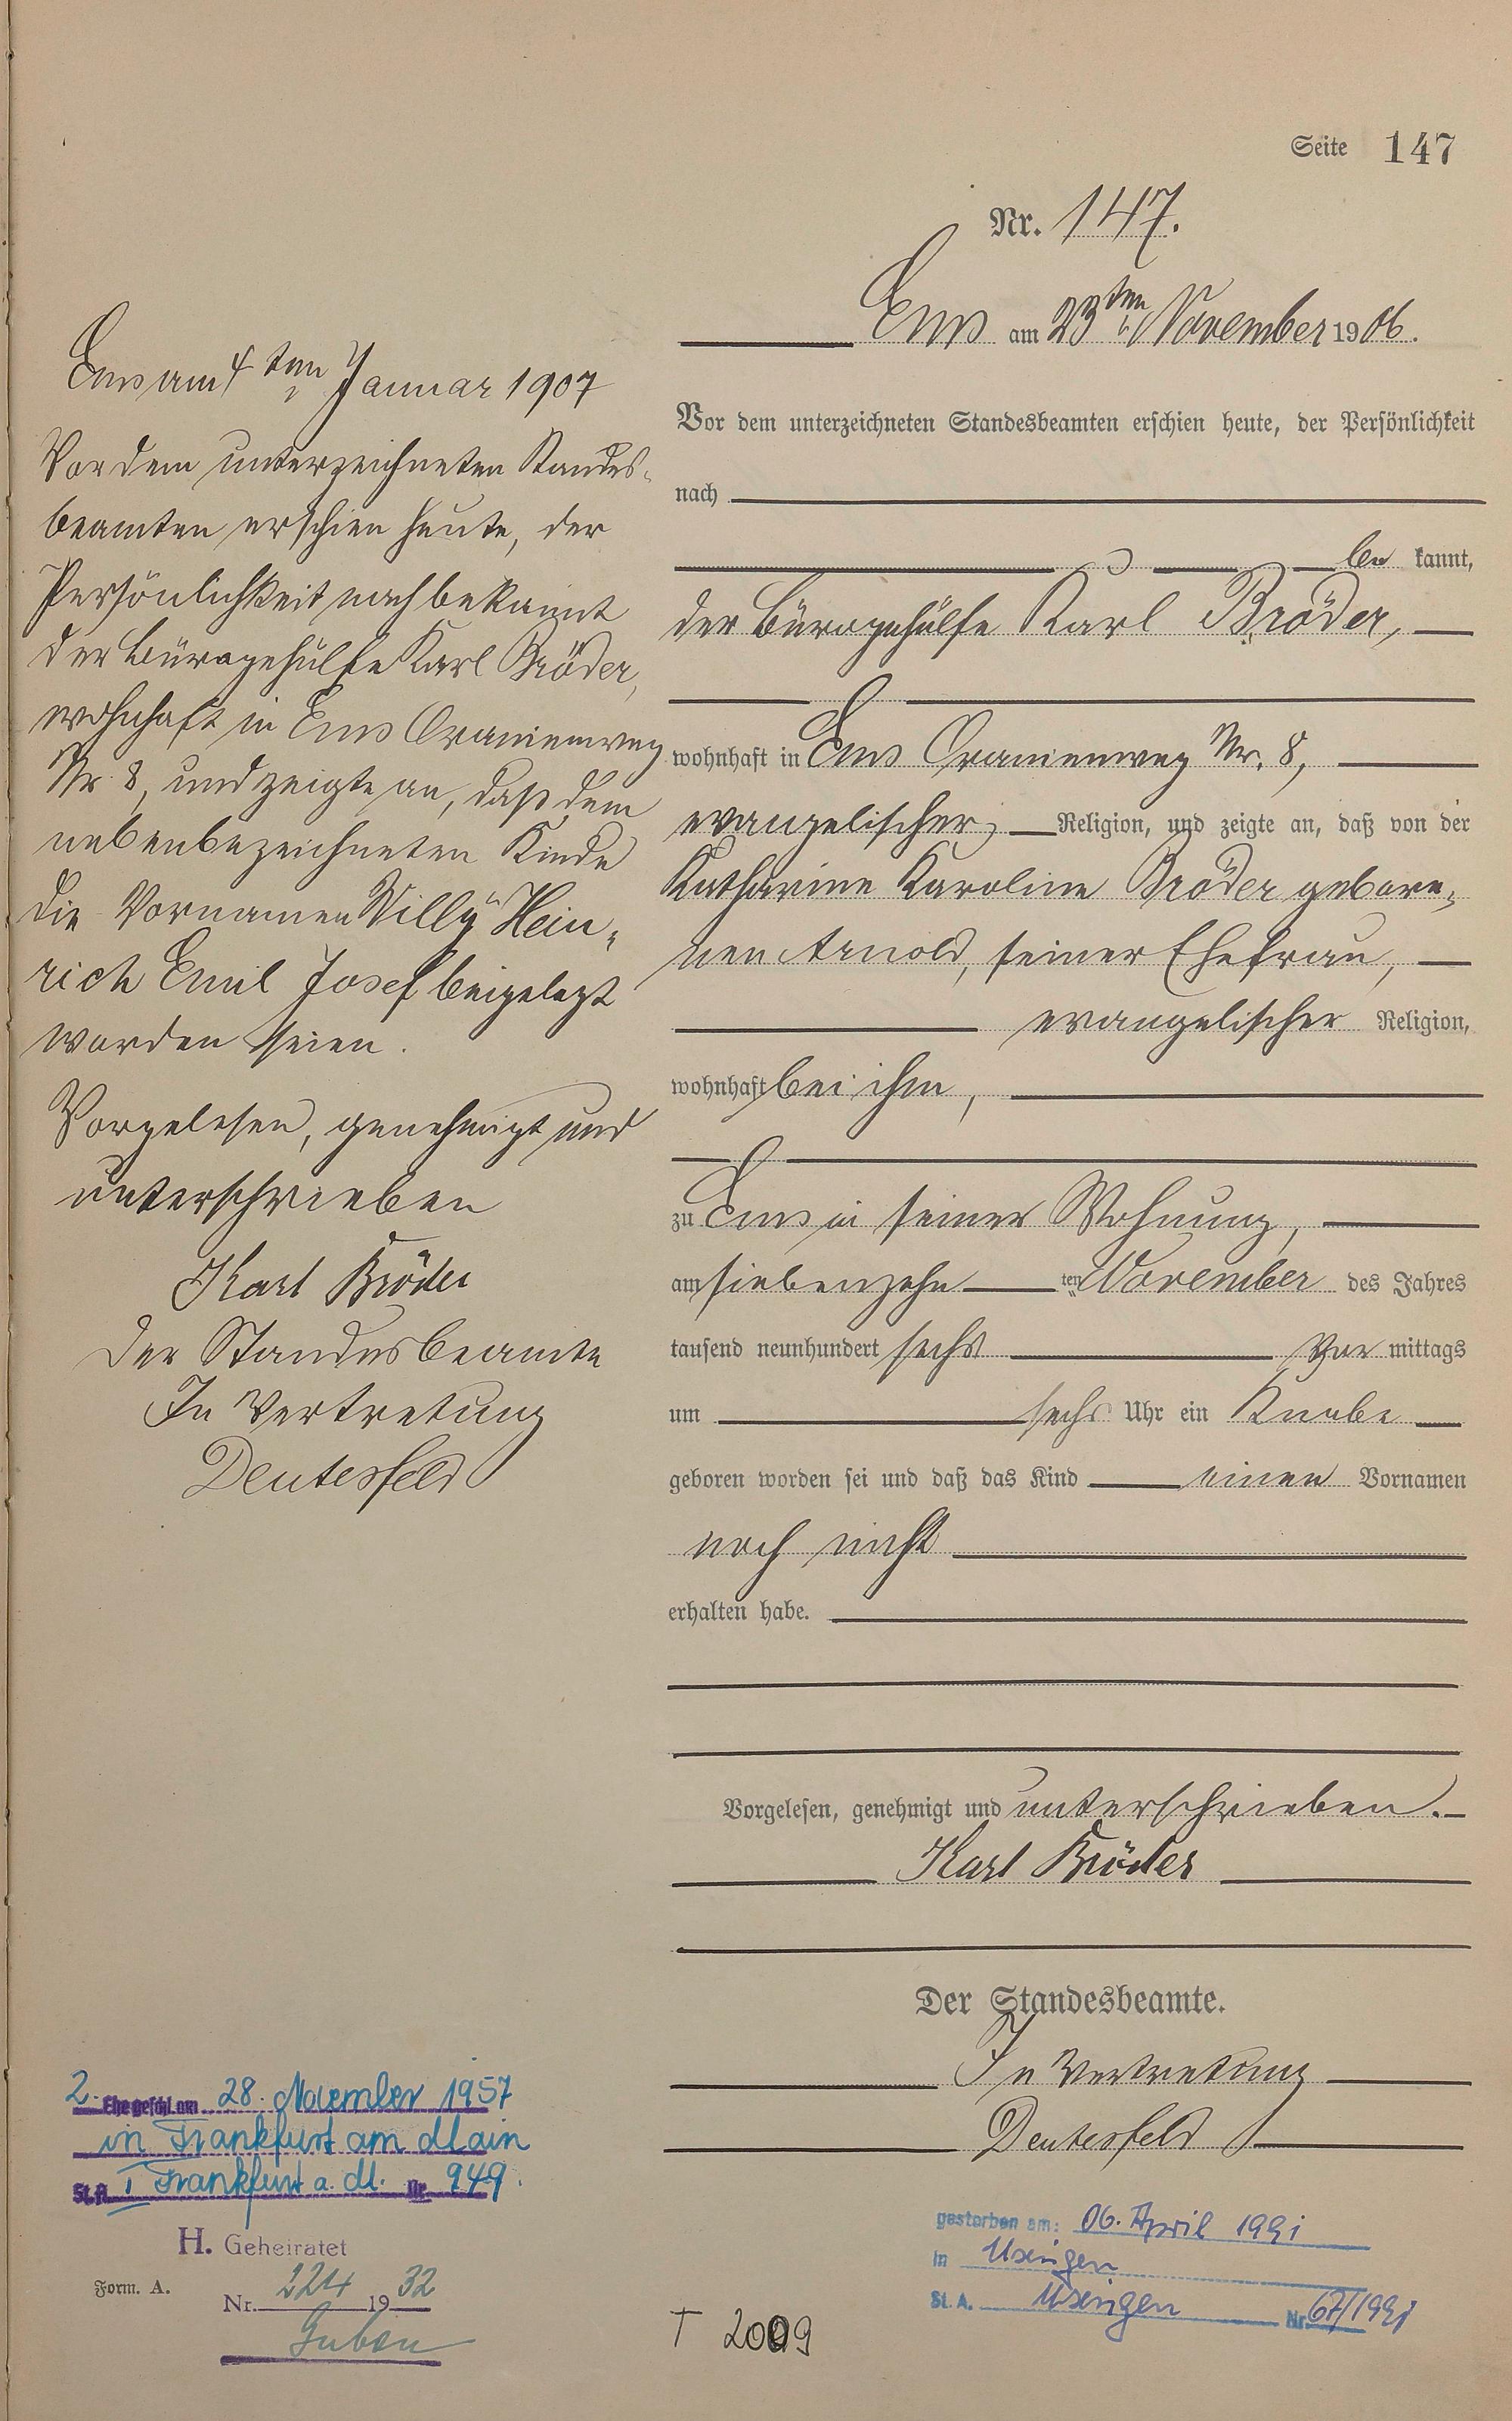 Seite 147
Nr. 147.
Ems am 23ten November 1906.
Vor dem unterzeichneten Standesbeamten erschien heute, der Persönlichkeit
nach
be kannt,
der Bürogehülfe Karl Bröder,
wohnhaft in Ems Oranienweg Nr. 8,
evangelischer Religion, und zeigte an, daß von der
Katharine Karoline Bröder gebore-
nen Arnold, seiner Ehefrau,
evangelischer Religion,
wohnhaft bei ihm,
zu Ems in seiner Wohnung,
am siebenzehn ten November des Jahres
tausend neunhundert sechs Vor mittags
um sechs Uhr ein Knabe
geboren worden sei und daß das Kind einen Vornamen
noch nicht
erhalten habe.
Vorgelesen, genehmigt und unterschrieben.
Karl Bröder
Der Standesbeamte.
In Vertretung
Deutesfeld
Ems am 4ten Januar 1907
Vor dem unterzeichneten Standes-
beamten erschien heute, der
Persönlichkeit nach bekannt
der Bürogehülfe Karl Bröder,
wohnhaft in Ems Oranienweg
Nr. 8, und zeigte an, daß dem
nebenbezeichneten Kinde
die Vornamen Willy Hein-
rich Emil Josef beigelegt
worden seien.
Vorgelesen, genehmigt und
unterschrieben
Karl Bröder
Der Standesbeamte
In Vertretung
Deutesfeld
2. Ehe geschl. am 28. November 1957
in Frankfurt am Main
St.A. I Frankfurt a. M. Nr. 949.
H. Geheiratet
Form. A.
Nr. 224 1932
Guben
gestorben am: 06. April 1991
in Usingen
St. A. Usingen Nr. 67/1991
T 2009